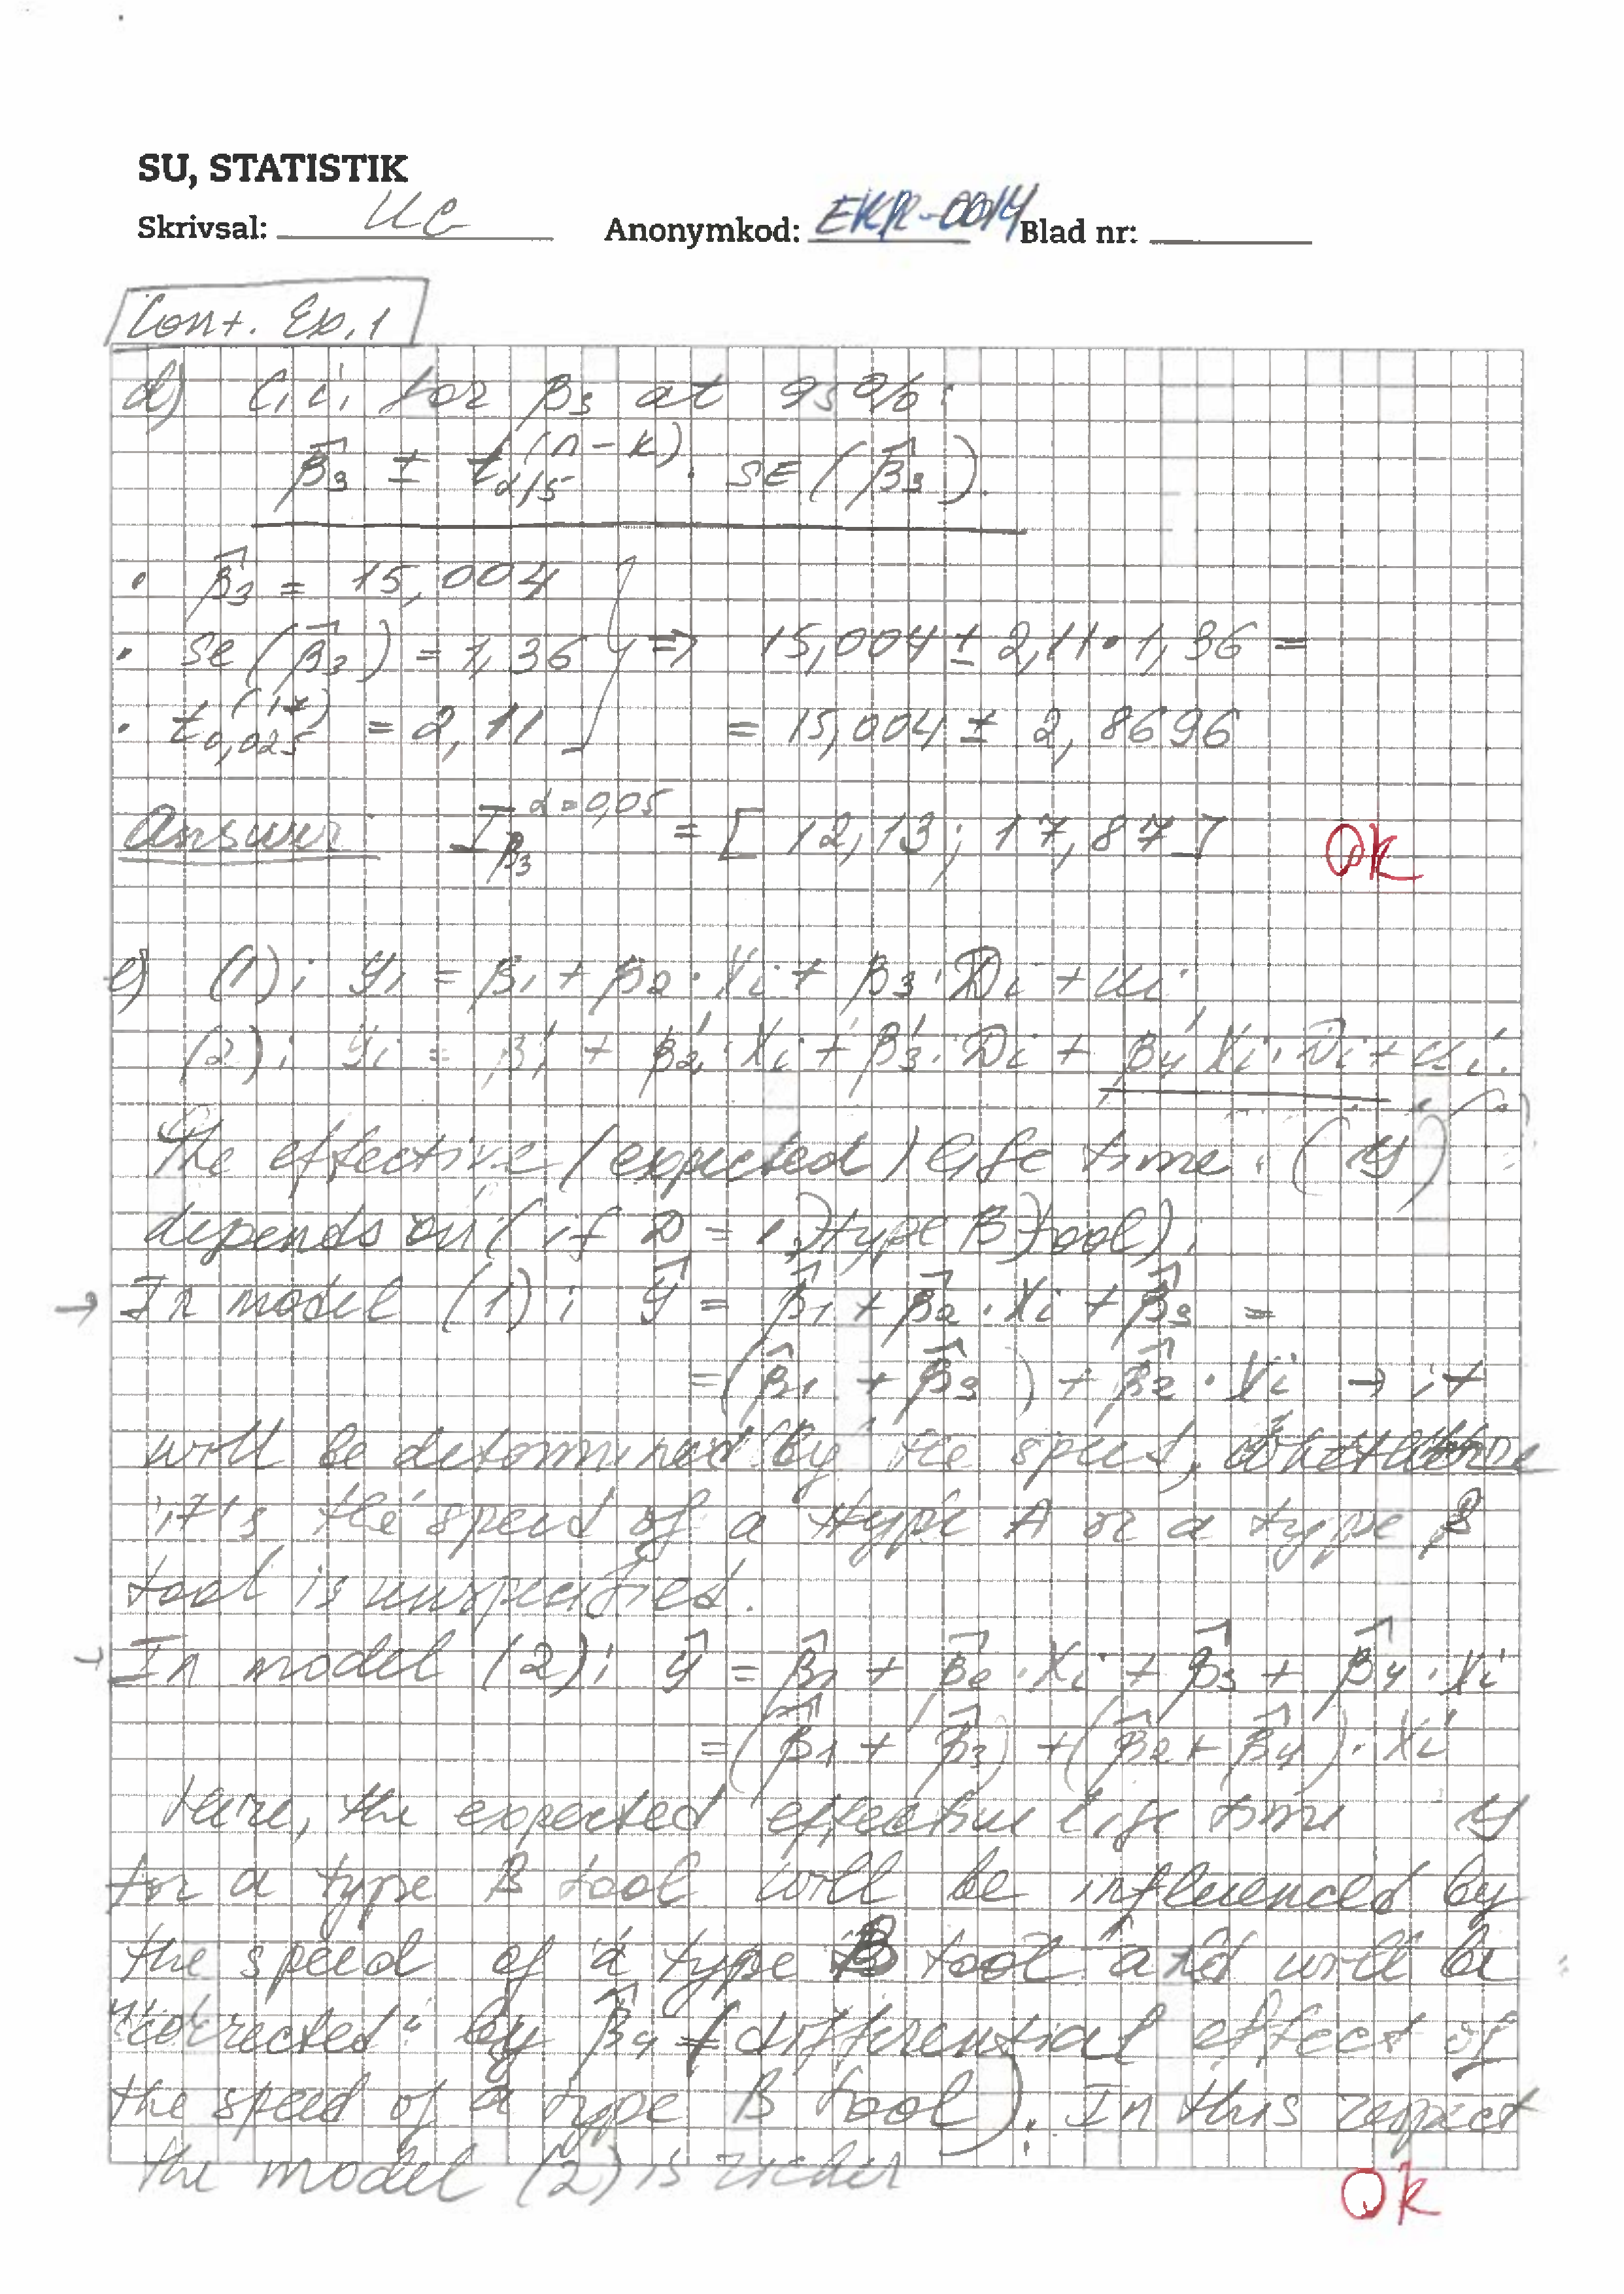 SU, STATISTIK
Skrivsal: UC Anonymkod: EKR-0014 Blad nr:
Cont. Ex. 1
d) C.i. for β3 at 95%:
β̂3 ± t α/5 (n-k) · SE(β̂3).
• β̂3 = 15,004
• se(β̂3) = 1,36 } ⇒ 15,004 ± 2,11 • 1,36 =
• t 0,025 (17) = 2,11 = 15,004 ± 2,8696
Answer I β3 α=0,05 = [12,13; 17,87] OK
e) (1): yi = β1 + β2 · Xi + β3 · Di + ui
(2): yi = β1' + β2' · Xi + β3' · Di + β4' Xi · Di + ui'.
The effective (expected) life time (y)
depends on (if D = 1, type B tool):
→ In model (1): ŷ = β̂1 + β̂2 · Xi + β̂3 =
= (β̂1 + β̂3) + β̂2 · Xi → it
will be determined by the speed,
it's the speed of a type A or a type B
tool is unspecified.
→ In model (2): ŷ = β̂1 + β̂2 · Xi + β̂3 + β̂4 · Xi
= (β̂1 + β̂3) + (β̂2 + β̂4) · Xi
Here, the expected effective life time y
for a type B tool will be influenced by
the speed of a type B tool and will be
"corrected" by β̂4 (differential effect of
the speed of a type B tool). In this respect
the model (2) is richer
OK